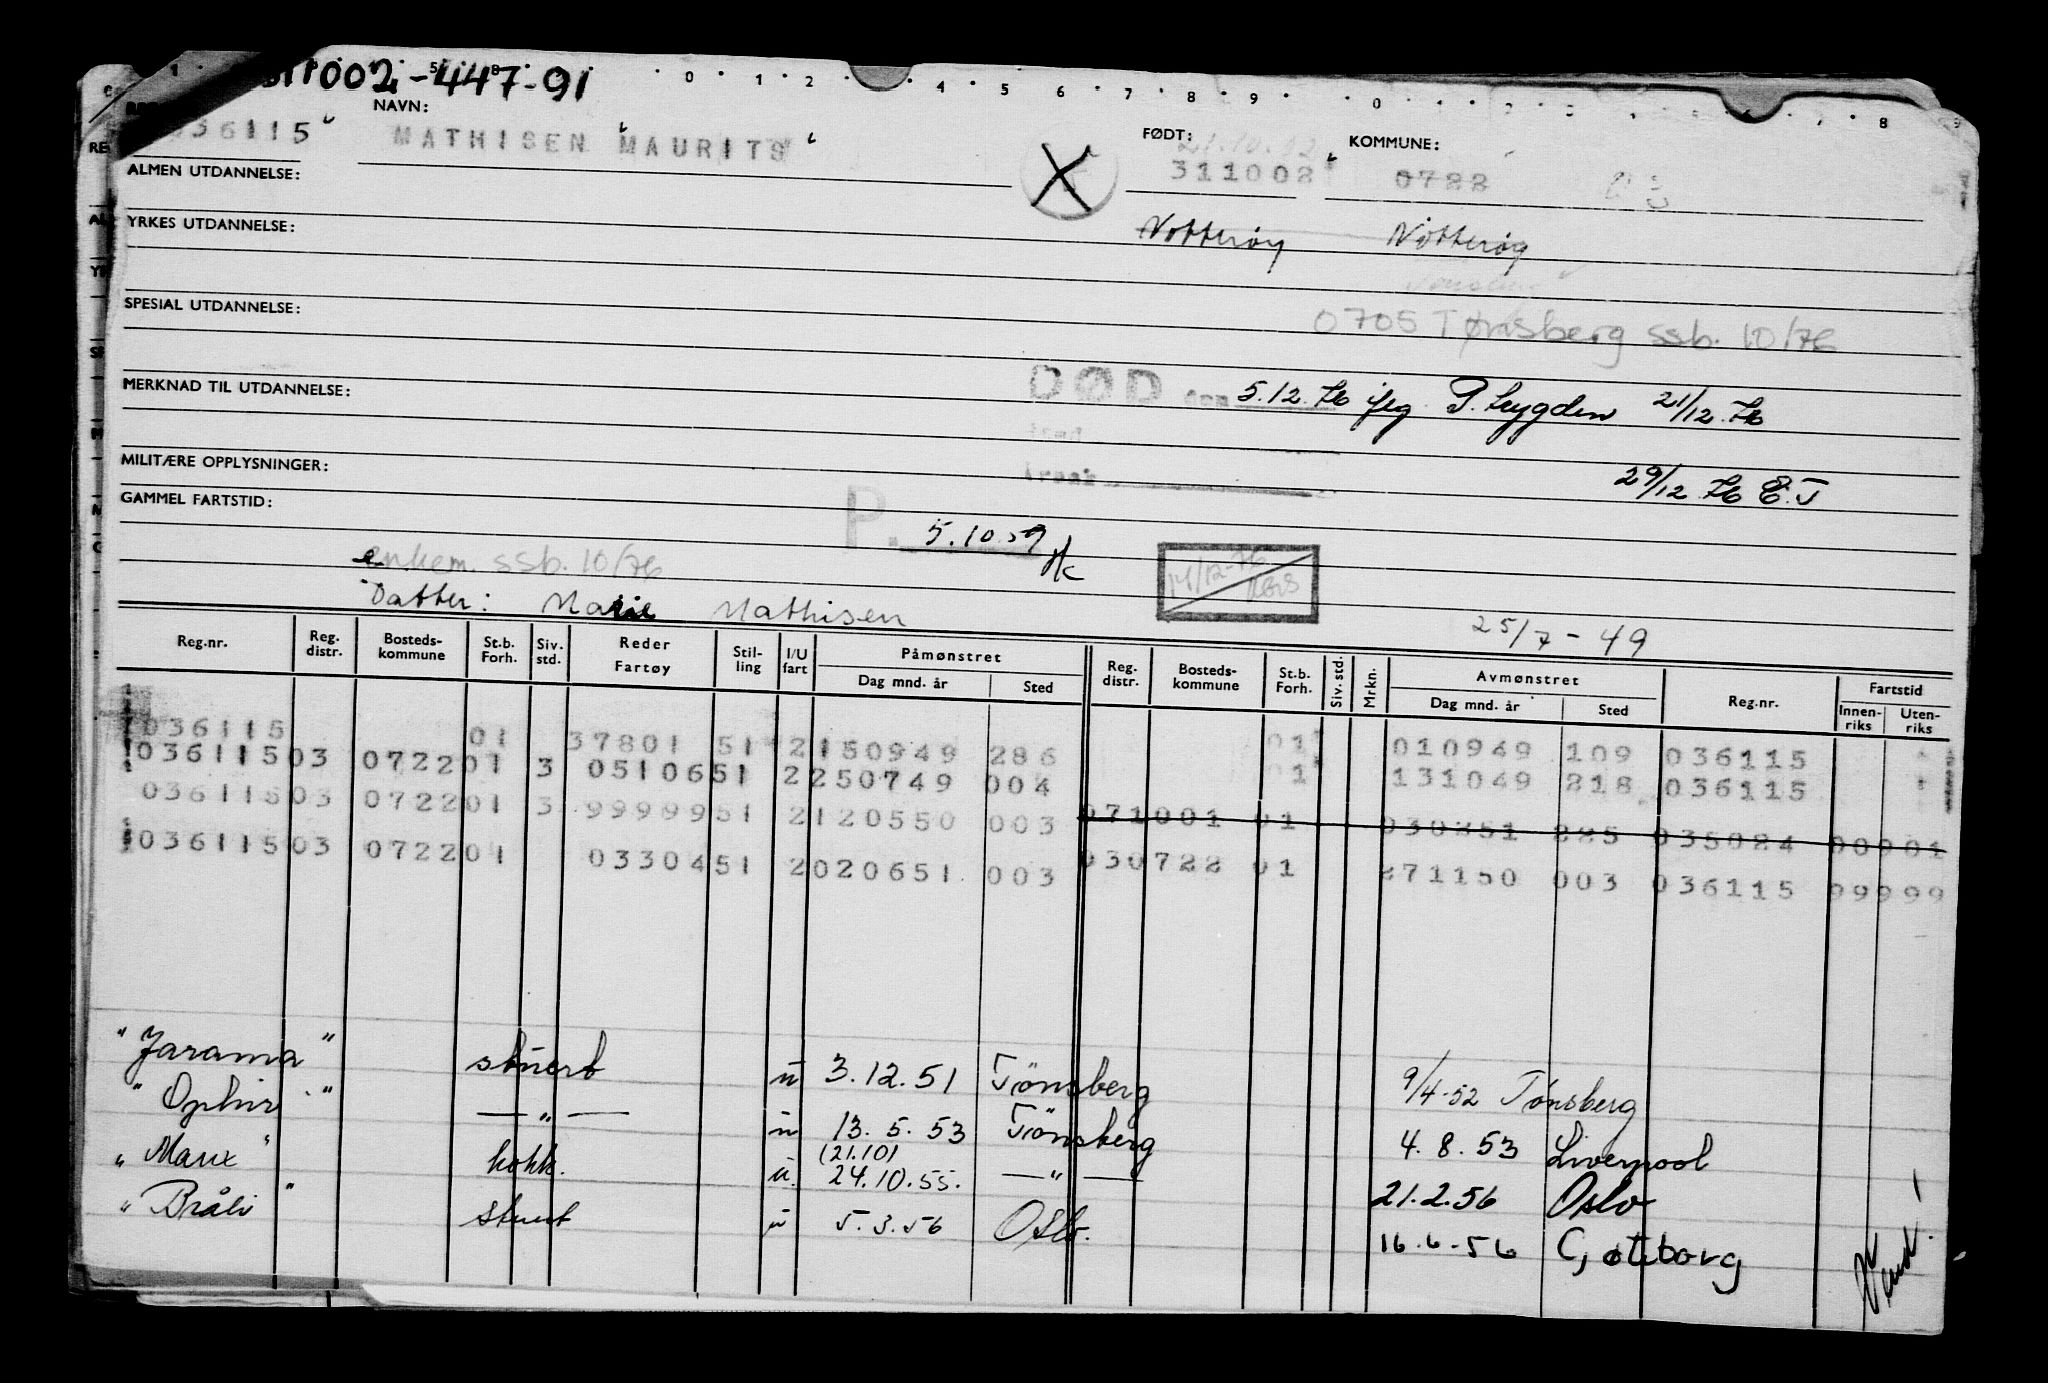 311002-447-91
NAVN:
036115 MATHISEN MAURITS
FØDT: KOMMUNE:
311002 0722
ALMEN UTDANNELSE:
YRKES UTDANNELSE:
Nøtterøy Nøtterøy
SPESIAL UTDANNELSE:
0705 Tønsberg ssb. 10/76
MERKNAD TIL UTDANNELSE:
DØD den 5.12.76 21/12.76
MILITÆRE OPPLYSNINGER:
Årsak
29/12.76 E.T
GAMMEL FARTSTID:
P. 5.10.59
enkem. ssb. 10/76
14/12-76
Datter: Marie Mathisen
25/7-49
Reg.nr. Reg. distr. Bosteds-kommune St.b. Forh. Siv. std. Reder Fartøy Stil-ling I/U fart Påmønstret Dag mnd. år Sted Reg. distr. Bosteds-kommune St.b. Forh. Siv. std. Mrkn. Avmønstret Dag mnd. år Sted Reg.nr. Fartstid Innen-riks Uten-riks
036115 01 37801 51 2 150949 286 01 010949 109 036115
036115 03 0722 01 3 05106 51 2 250749 004 1 131049 218 036115
036115 03 0722 01 3 99999 51 2 120550 003 071001 01 030351 225 035024 00901
036115 03 0722 01 03304 51 2 020651 003 030722 01 271150 003 036115 99999
"Jarama" stuert u 3.12.51 Tönsberg 9/4-52 Tønsberg
"Ophir" —"— u 13.5.53 Tönsberg 4.8.53 Liverpool
(21.10)
"Manx" kokk. u. 24.10.55. —"— 21.2.56 Oslo
"Bråli" stuert u 5.3.56 Oslo. 16.6-56 Gøteborg
Vend!